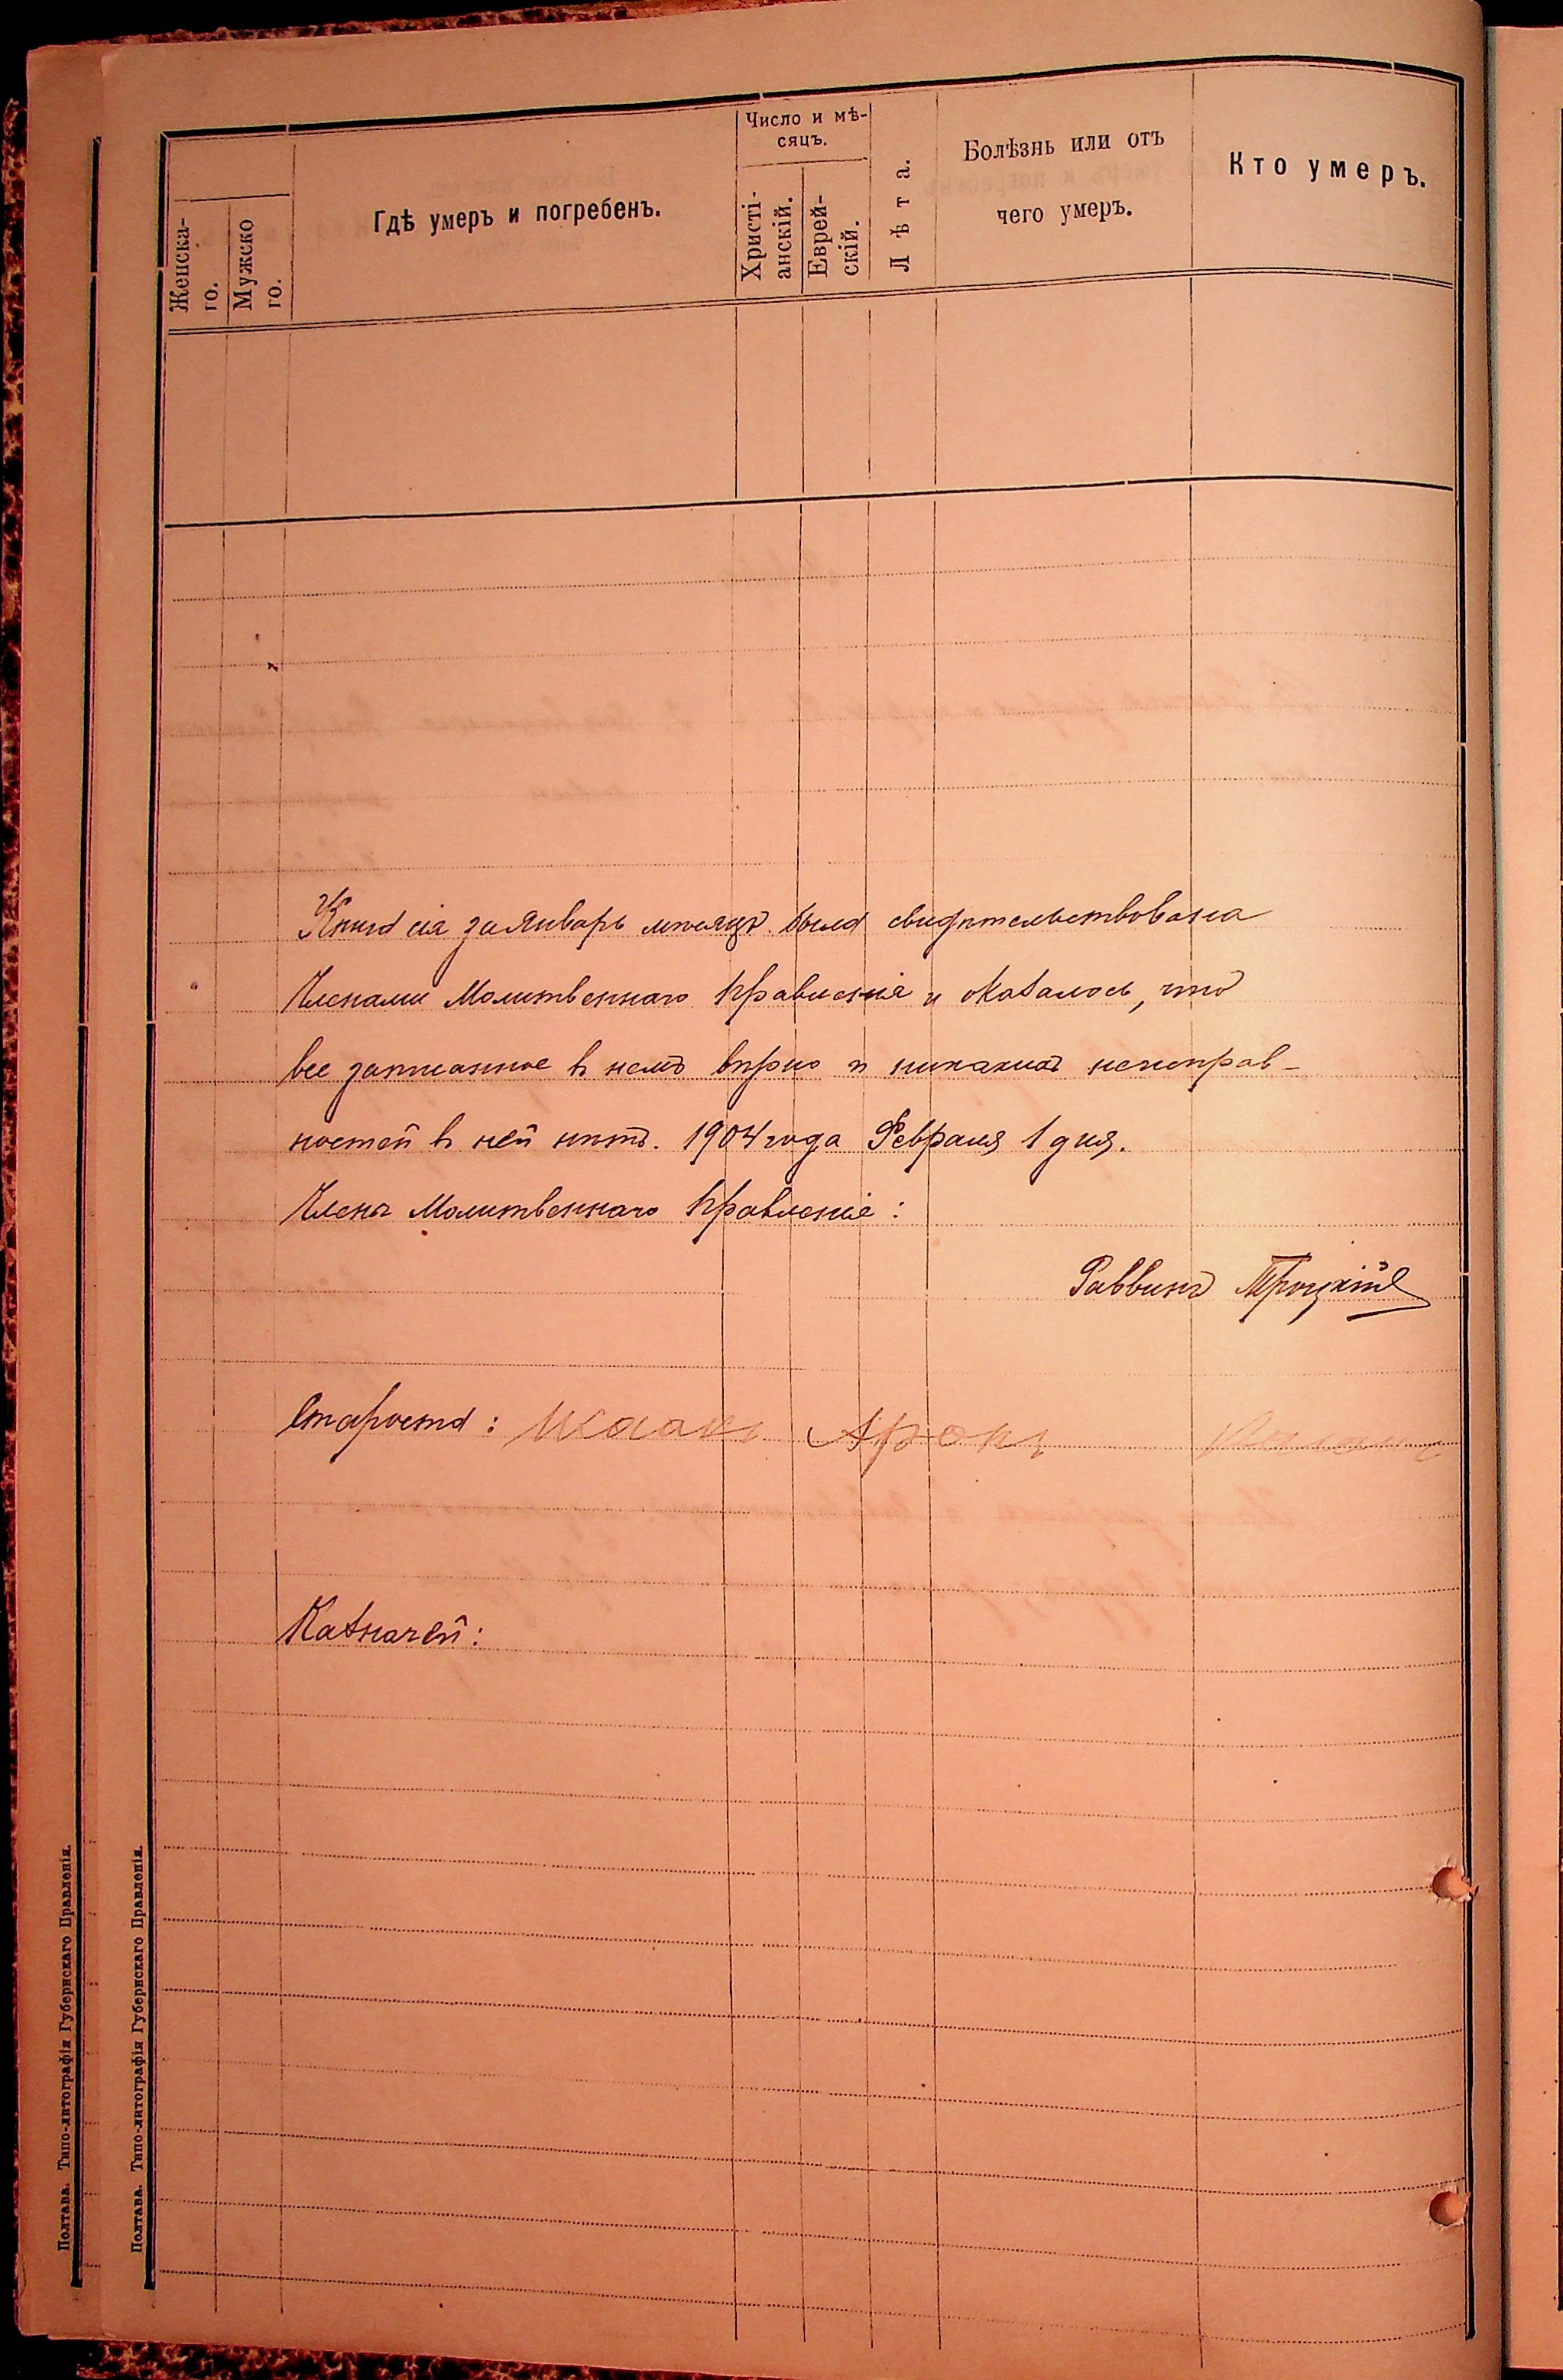 Женска-
го.
Мужско
го.
Гдѣ умеръ и погребенъ.
Число и мѣ-
сяцъ.
Христі-
анскій.
Еврей-
скій.
Лѣта.
Болѣзнь или отъ
чего умеръ.
Кто умеръ.
Книга сія за Январь мѣсяцъ была свидѣтельствована
Членами Молитвеннаго Правленія и оказалось, что
все записанное в немъ вѣрно и никакихъ неисправ-
ностей в ней нѣтъ. 1904 года Февраля 1 дня.
Члены Молитвеннаго Правленія:
Раввинъ Троцкій
Староста: Исаакъ Аронъ
Казначей:
Полтава. Типо-литографія Губернскаго Правленія.
Полтава. Типо-литографія Губернскаго Правленія.